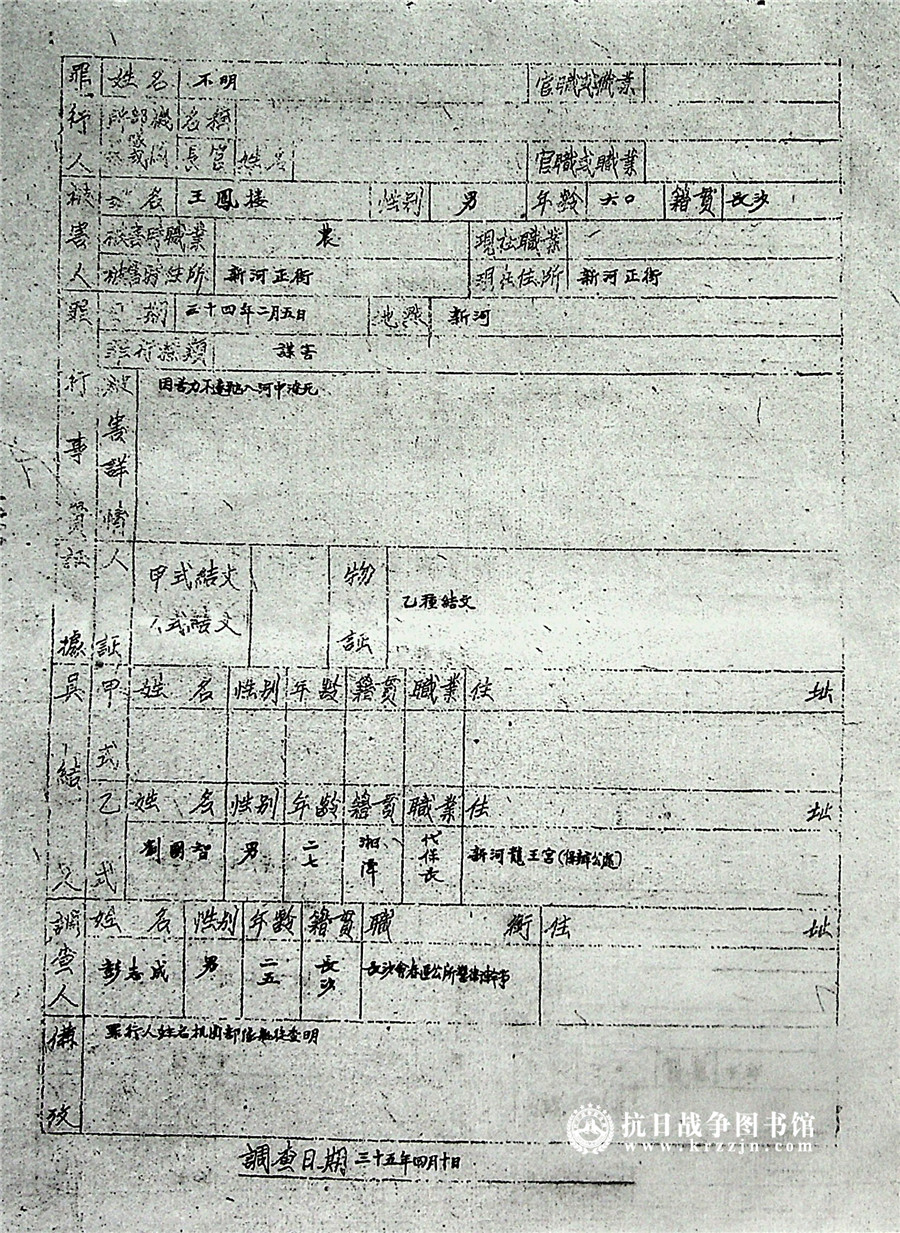 罪行人 姓名 不明 官職或職業
所部機 名稱
長官 姓名 官職或職業
被害人 姓名 王鳳楼 性别 男 年齡 六〇 籍貫 長沙
被害時職業 農 現在職業
被害時住所 新河正街 現在住所 新河正街
罪行事實 日期 三十四年二月五日 地點 新河
罪行種類 謀害
被害詳情 因苦力不達抛入河中淹死
証據 人証 甲式結文 物証 乙種結文
乙式結文
具結人 甲式 姓名 性别 年齡 籍貫 職業 住址
乙式 姓名 性别 年齡 籍貫 職業 住址
劉國智 男 二七 湘潭 代保長 新河龍王宮(保辦公處)
調查人 姓名 性别 年齡 籍貫 職銜 住址
彭志成 男 二五 長沙 長沙會春區公所幹事
備攷 罪行人姓名机关部隊無從查明
調查日期 三十五年四月十日
抗日战争图书馆
www.krzzjn.com